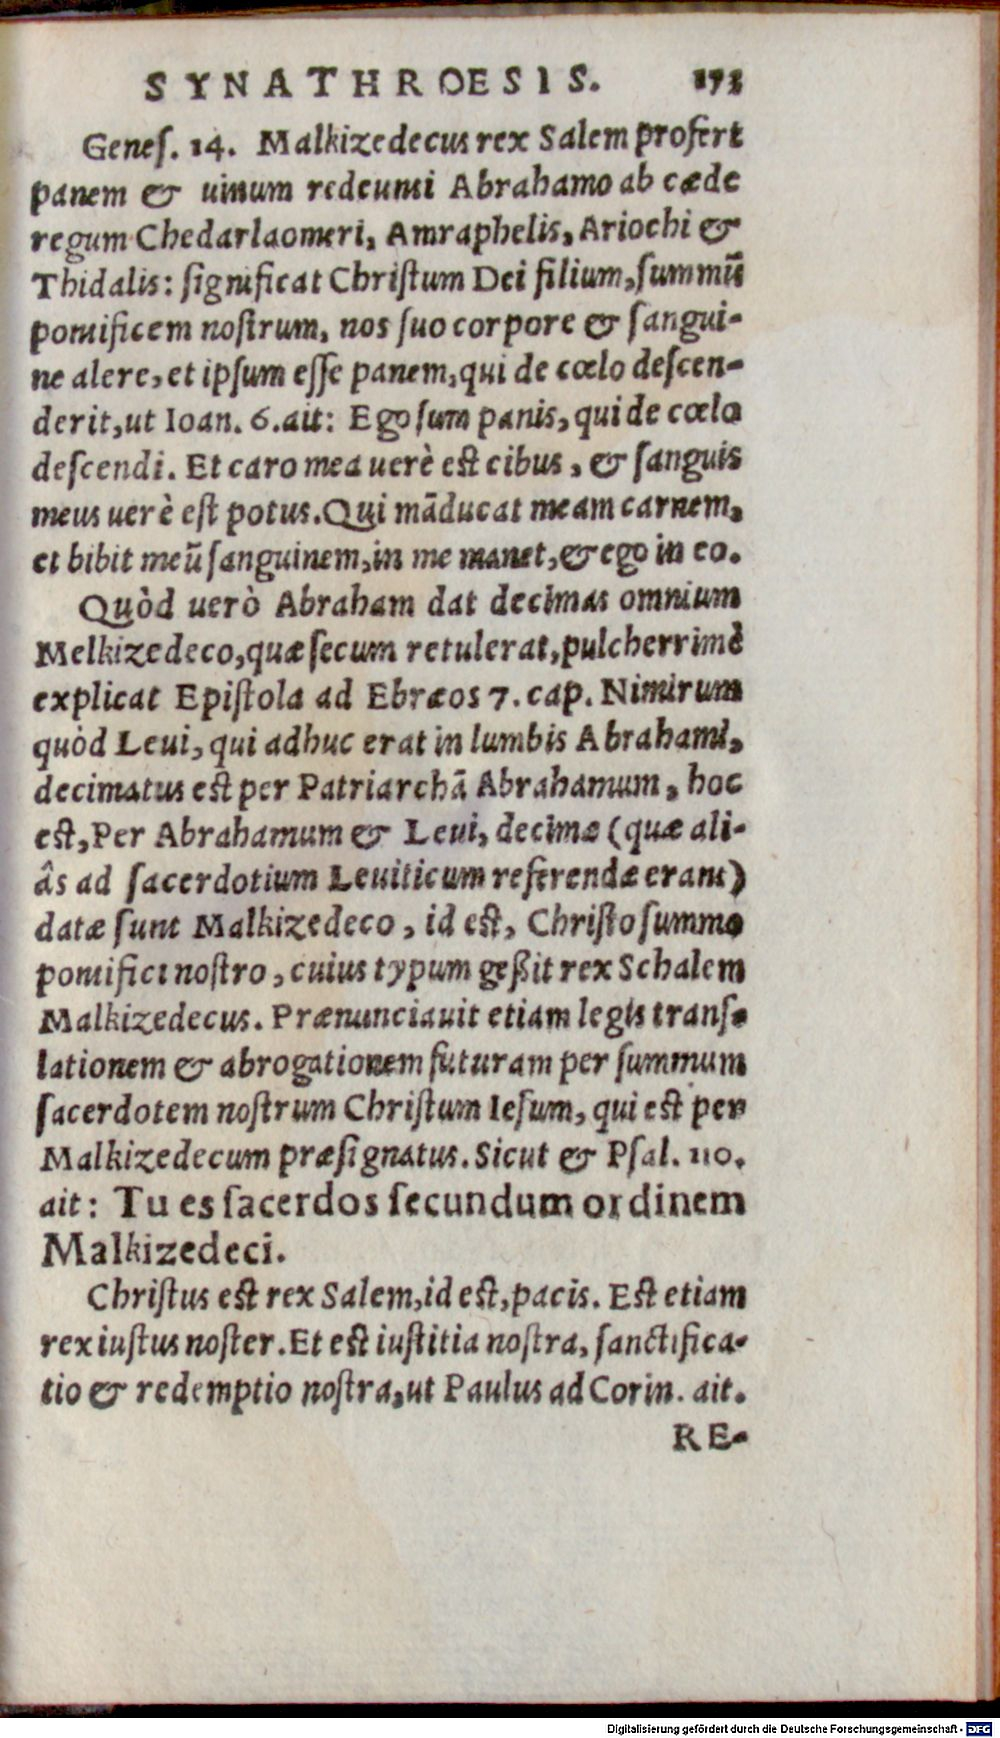 SYNATHROESIS. 173
Geneſ. 14. Malkizedecus rex Salem profert
panem & uinum redeunti Abrahamo ab cæde
regum Chedarlaomeri, Amraphelis, Ariochi &
Thidalis: ſignificat Chriſtum Dei filium, ſummũ
pontificem noſtrum, nos ſuo corpore & ſangui-
ne alere, et ipſum eſſe panem, qui de cœlo deſcen-
derit, ut Ioan. 6. ait: Ego ſum panis, qui de cœlo
deſcendi. Et caro mea uerè eſt cibus, & ſanguis
meus uerè eſt potus. Qui mãducat meam carnem,
et bibit meũ ſanguinem, in me manet, & ego in eo.
Quòd uerò Abraham dat decimas omnium
Melkizedeco, quæ ſecum retulerat, pulcherrimè
explicat Epiſtola ad Ebræos 7. cap. Nimirum
quòd Leui, qui adhuc erat in lumbis Abrahami,
decimatus eſt per Patriarchã Abrahamum, hoc
eſt, Per Abrahamum & Leui, decimæ (quæ ali-
âs ad ſacerdotium Leuiticum referendæ erant)
datæ ſunt Malkizedeco, id eſt, Chriſto ſummo
pontifici noſtro, cuius typum geßit rex Schalem
Malkizedecus. Prænunciauit etiam legis tranſ-
lationem & abrogationem futuram per ſummum
ſacerdotem noſtrum Chriſtum Ieſum, qui eſt per
Malkizedecum præſignatus. Sicut & Pſal. 110.
ait: Tu es ſacerdos ſecundum ordinem
Malkizedeci.
Chriſtus eſt rex Salem, id eſt, pacis. Eſt etiam
rex iuſtus noſter. Et eſt iuſtitia noſtra, ſanctifica-
tio & redemptio noſtra, ut Paulus ad Corin. ait.
RE-
Digitalisierung gefördert durch die Deutsche Forschungsgemeinschaft - DFG